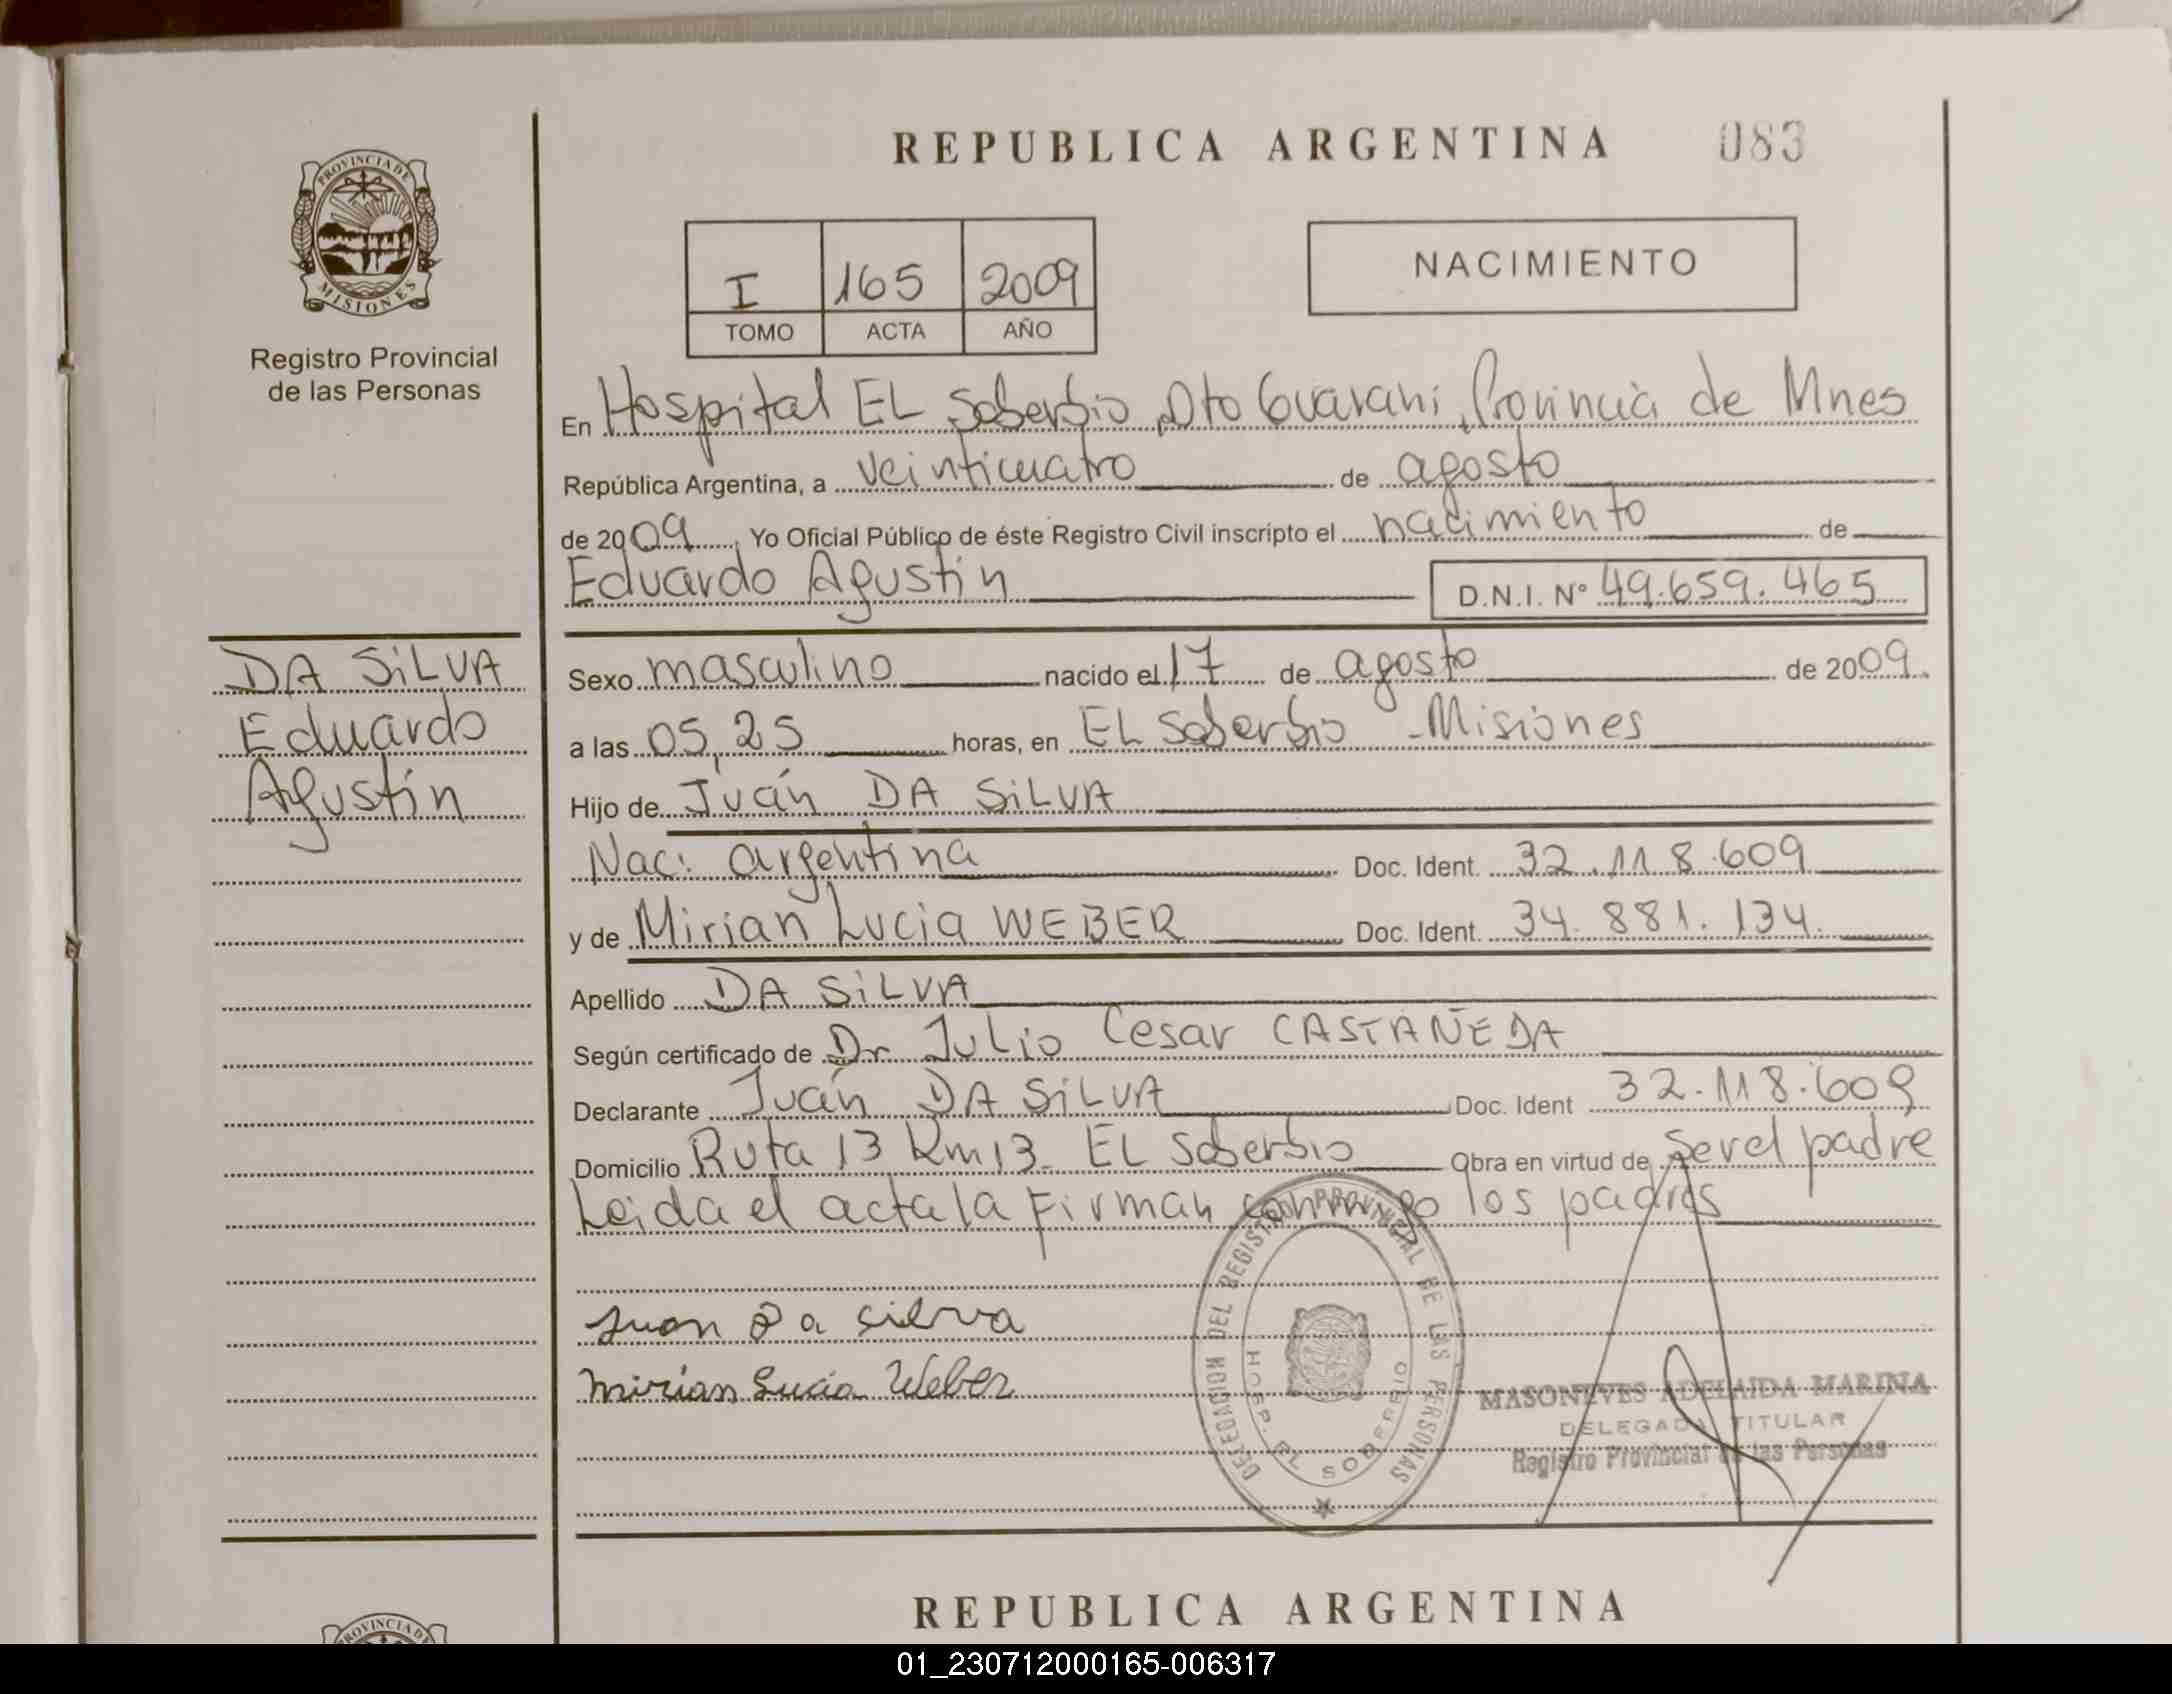 REPUBLICA ARGENTINA 083
PROVINCIA DE
MISIONES
Registro Provincial
de las Personas
I 165 2009
TOMO ACTA AÑO
NACIMIENTO
En Hospital EL Soberbio, Dto Guarani, Provincia de Mnes
República Argentina, a veinticuatro de agosto
de 2009 Yo Oficial Público de éste Registro Civil inscripto el nacimiento de
Eduardo Agustín D.N.I. Nº 49.659.465
DA SiLVA
Eduardo
Agustín
Sexo masculino nacido el 17 de agosto de 2009.
a las 05,25 horas, en EL Soberbio - Misiones
Hijo de Juán DA SiLVA
Nac: argentina Doc. Ident. 32.118.609
y de Mirian Lucia WEBER Doc. Ident. 34.881.134.
Apellido DA SiLVA
Según certificado de Dr Julio Cesar CASTAÑEDA
Declarante Juán DA SiLVA Doc. Ident 32.118.609
Domicilio Ruta 13 Km 13 - EL Soberbio Obra en virtud de ser el padre
Leida el acta la Firman conmigo los padres
Juan Da silva
mirian Lucia Weber
DELEGACION DEL REGISTRO PROVINCIAL DE LAS PERSONAS
HOSP. EL SOBERBIO
MASONEVES ADELAIDA MARINA
DELEGADA TITULAR
Registro Provincial de las Personas
REPUBLICA ARGENTINA
PROVINCIA D
01_230712000165-006317